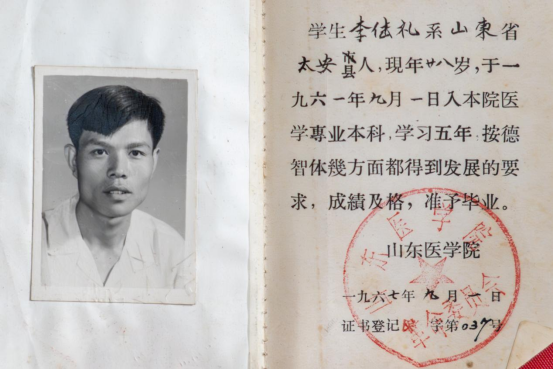 学生李传礼系山東省
太安县人,現年廿八岁,于一
九六一年九月一日入本院医
学專业本科,学习五年,按德
智体幾方面都得到发展的要
求,成績及格,准予毕业。
山东医学院
一九六七年九月一日
证书登记 字第037号
山东医学院
革命委员会